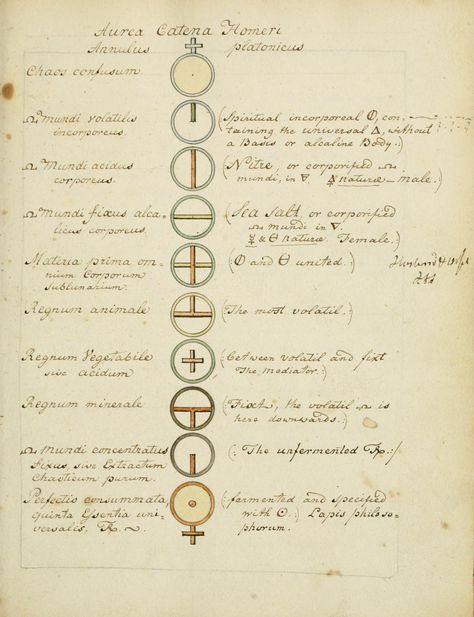 Aurea Catena Homeri
Annulus platonicus
Chaos confusum.
☊ Mundi volatilis
incorporeus.
(: Spiritual incorporeal 🜕, con-
taining the universal 🜂, without
a Basis or alcaline Body :)
☊ Mundi acidus
corporeus.
(: Nitre, or corporified ☊
mundi, in 🜄. naturæ male :)
☊ Mundi fixus alca-
licus corporeus.
(: Sea Salt, or corporified
☊ mundi in 🜄.
& 🜔 naturæ Female :)
Materia prima om-
nium Corporum
Sublunarium.
(: 🜕 and 🜔 united. :)
Husband &
Regnum animale
(: The most volatil. :)
Regnum Vegetabile
sive acidum
(: between volatil and fixt
The mediator. :)
Regnum minerale.
(: Fixt, the volatil ☊ is
here downwards. :)
☊ Mundi concentratus
Fixus, sive Extractum
Chaoticum purum.
(: The unfermented :)
Perfectio consummata,
Quinta Essentia uni-
versalis, ☊.
(: fermented and specified
with ☉ :) Lapis philoso-
phorum.